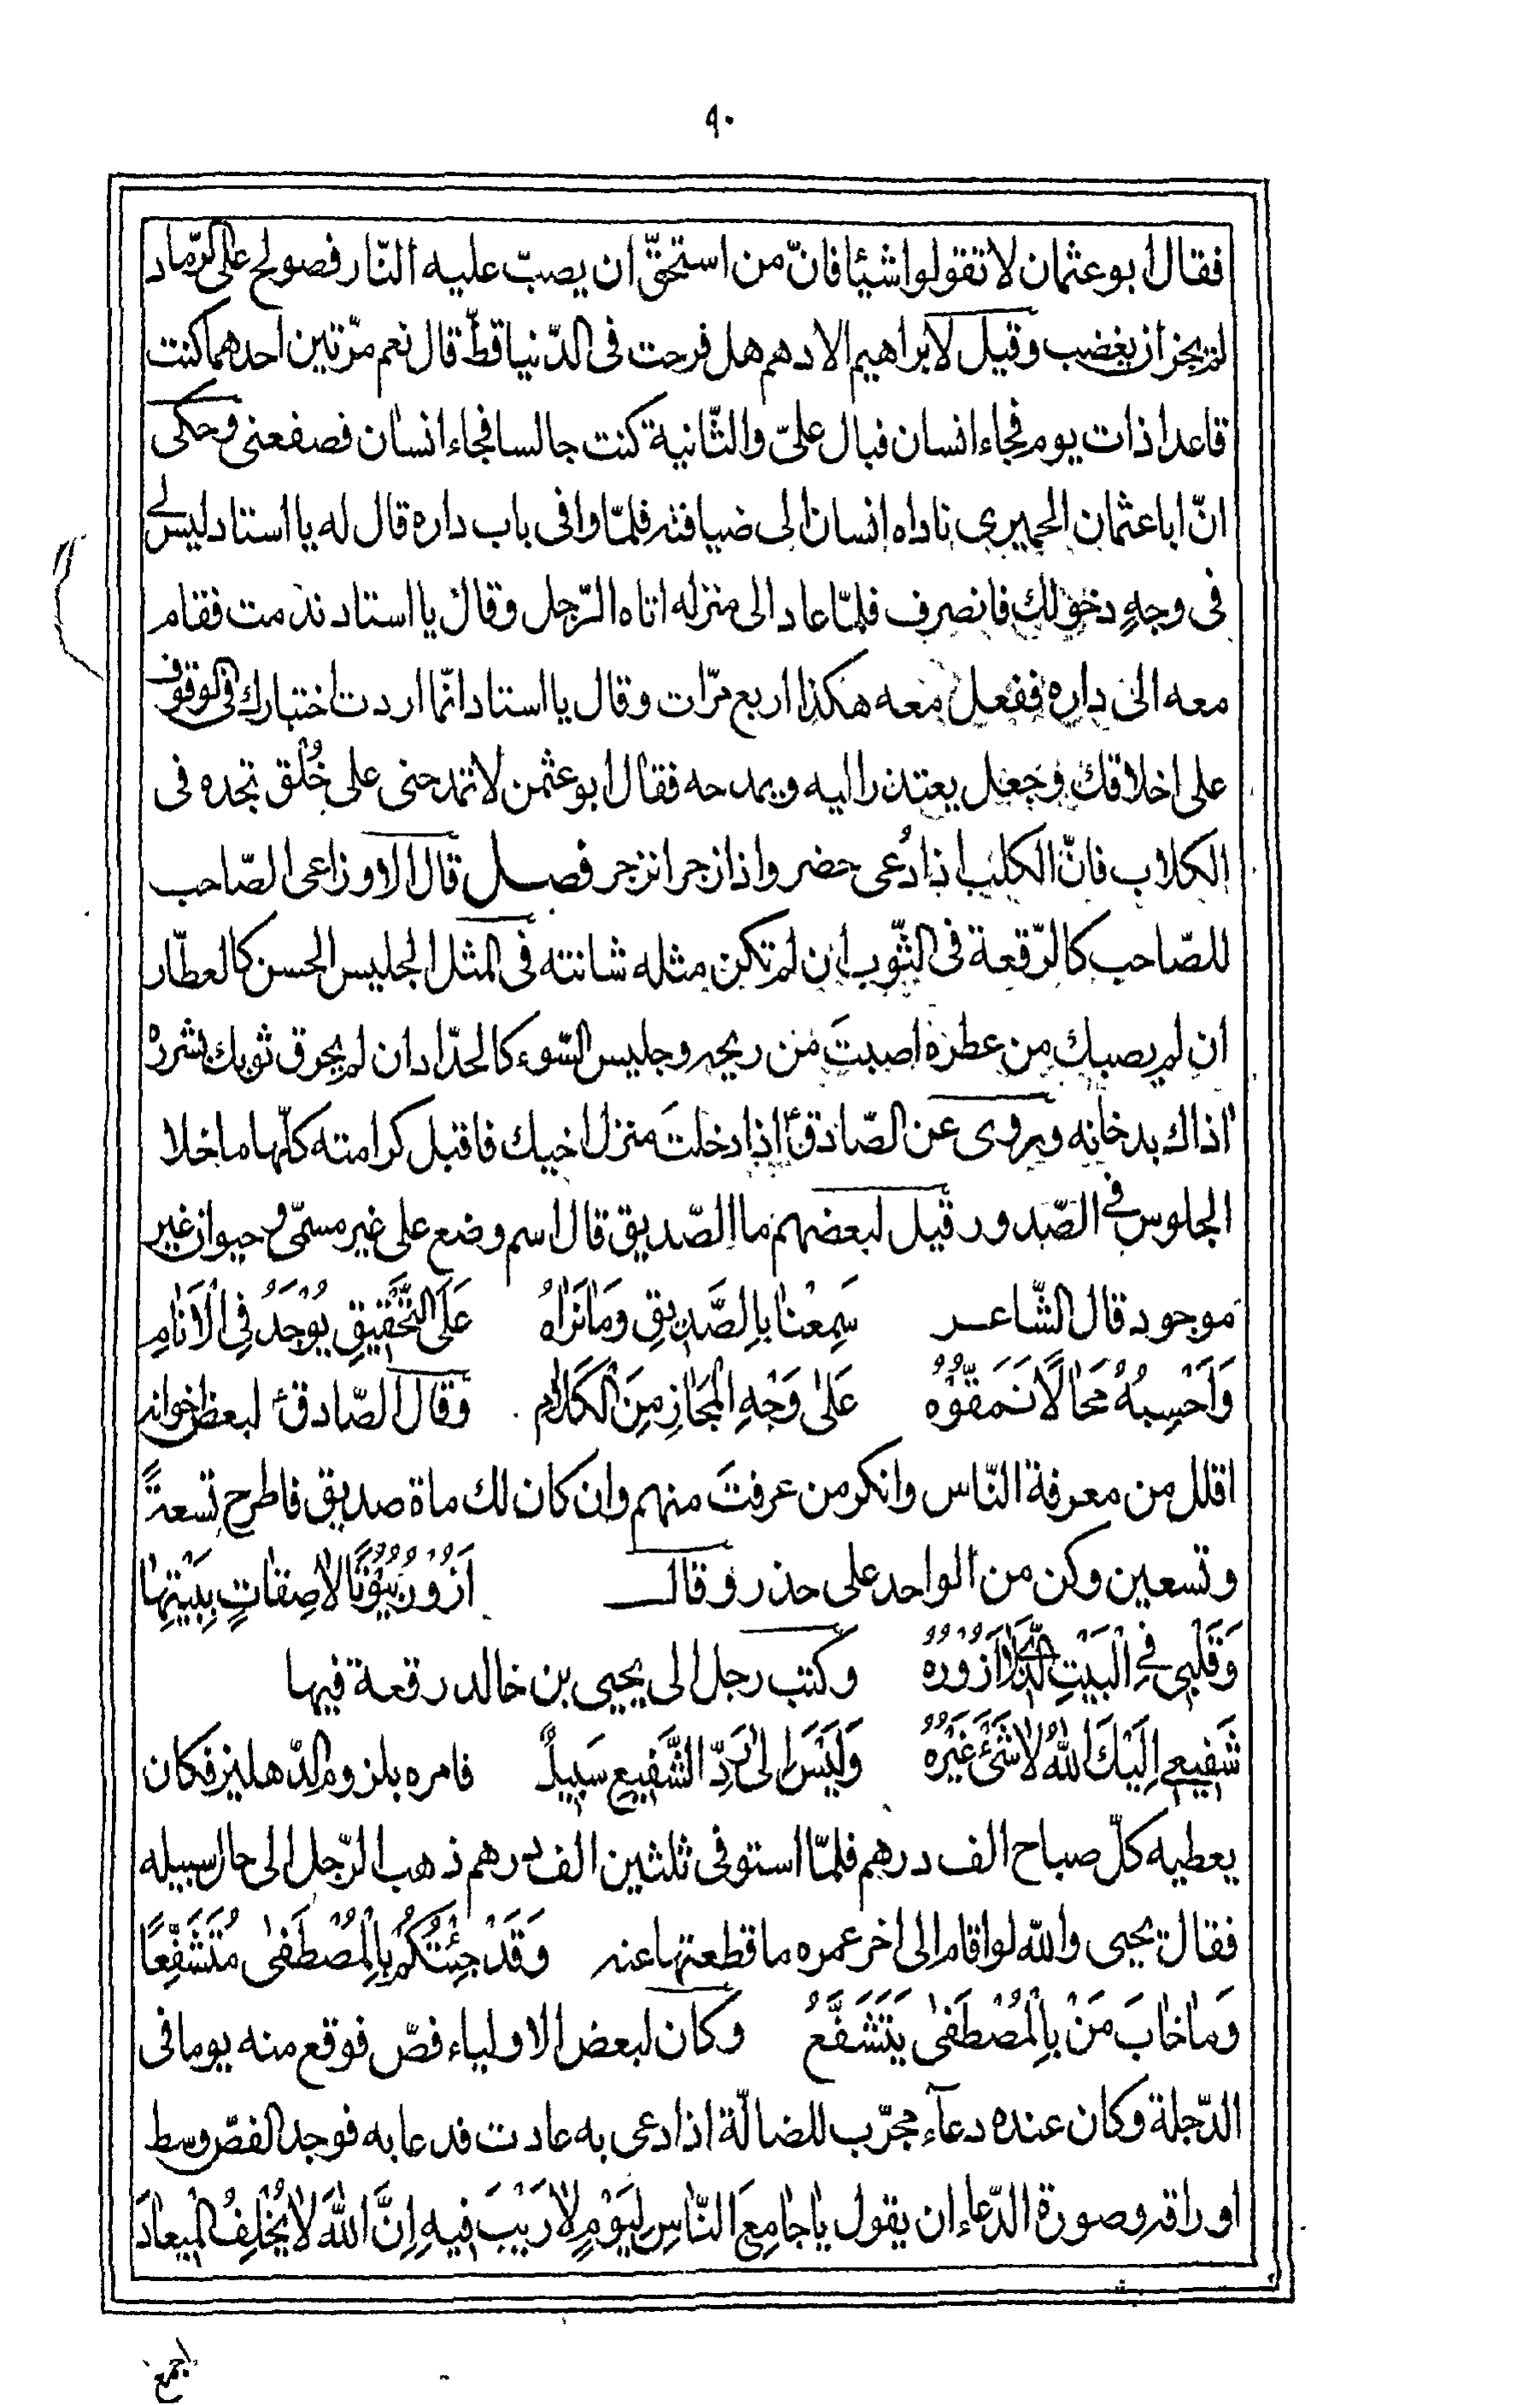 ٩٠
فقال ابو عثمان لا تقولوا شيئا فانّ من استحقّ ان يصبّ عليه النّار فصولح على الرّماد
لم يجز ان يغضب وقيل لابراهيم الادهم هل فرحت فى الدّنيا قطّ قال نعم مرّتين احدهما كنت
قاعدا ذات يوم فجاء انسان فبال علىّ والثّانية كنت جالسا فجاء انسان فصفعنى وحكى
انّ ابا عثمان الحميرى ناداه انسان الى ضيافته فلمّا وافى باب داره قال له يا استاد ليس لى
فى وجهٍ دخولك فانصرف فلمّا عاد الى منزله اتاه الرّجل وقال يا استاد ندمت فقام
معه الى داره ففعل معه هكذا اربع مرّات وقال يا استاد انّما اردت اختبارك فى الوقوف
على اخلاقك وجعل يعتذر اليه ويمدحه فقال ابو عثمن لا تمدحنى على خُلُق تجده فى
الكلاب فانّ الكلب اذا دُعى حضر واذا زجر انزجر فصل قال الاوزاعى الصّاحب
للصّاحب كالرّقعة فى الثّوب ان لم تكن مثله شانته فى المثل الجليس الحسن كالعطّار
ان لم يصبك من عطره اصبتَ من ريحه وجليس السّوء كالحدّاد ان لم يحرق ثوبك بشرره
اذاك بدخانه ويروى عن الصّادقؑ اذا دخلتَ منزل اخيك فاقبل كرامته كلّها ما خلا
الجلوس فى الصّدور قيل لبعضهم ما الصّديق قال اسم وضع على غير مسمّى وحيوان غير
موجود قال الشّاعر سَمِعْنٰا بِالصَّدِيقِ وَمٰا نَرٰاهُ عَلَى التَّحْقِيقِ يُوْجَدُ فِى الْاَنٰامِ
وَاَحْسِبُهُ مَحٰالًا نَمَّقُوْهُ عَلىٰ وَجْهِ الْمَجٰازِ مِنَ الْكَلٰامِ وقال الصّادقؑ لبعض اخوانه
اقلل من معرفة النّاس وانكر من عرفتَ منهم وان كان لك ماة صديق فاطرح تسعةً
وتسعين وكن من الواحد على حذر وقال اَزُوْرُ بُيُوْتًا لٰاصِقٰاتٍ بِبَيْتِهٰا
وَقَلْبِى فِى الْبَيْتِ الَّذِى لٰا اَزُوْرُهُ وكتب رجل الى يحيى بن خالد رقعة فيها
شَفِيعِى اِلَيْكَ اللّٰهُ لٰا شَىْءَ غَيْرُهُ وَلَيْسَ اِلىٰ رَدِّ الشَّفِيعِ سَبِيلٌ فامره بلزوم الدّهليز فكان
يعطيه كلّ صباح الف درهم فلمّا استوفى ثلثين الف درهم ذهب الرّجل الى حال سبيله
فقال يحيى واللّه لو اقام الى اخر عمره ما قطعتها عنه وَقَدْ جِئْتُكُمْ بِالْمُصْطَفىٰ مُتَشَفِّعًا
وَمٰا خٰابَ مَنْ بِالْمُصْطَفىٰ يَتَشَفَّعُ وكان لبعض الاولياء فصّ فوقع منه يوما فى
الدّجلة وكان عنده دعآء مجرّب للضالّة اذا دعى به عادت فدعا به فوجد الفصّ وسط
اوراقه وصورة الدّعاء ان يقول يٰا جٰامِعَ النّٰاسِ لِيَوْمٍ لٰا رَيْبَ فِيهِ اِنَّ اللّٰهَ لٰا يُخْلِفُ الْمِيعٰادَ
اجمع